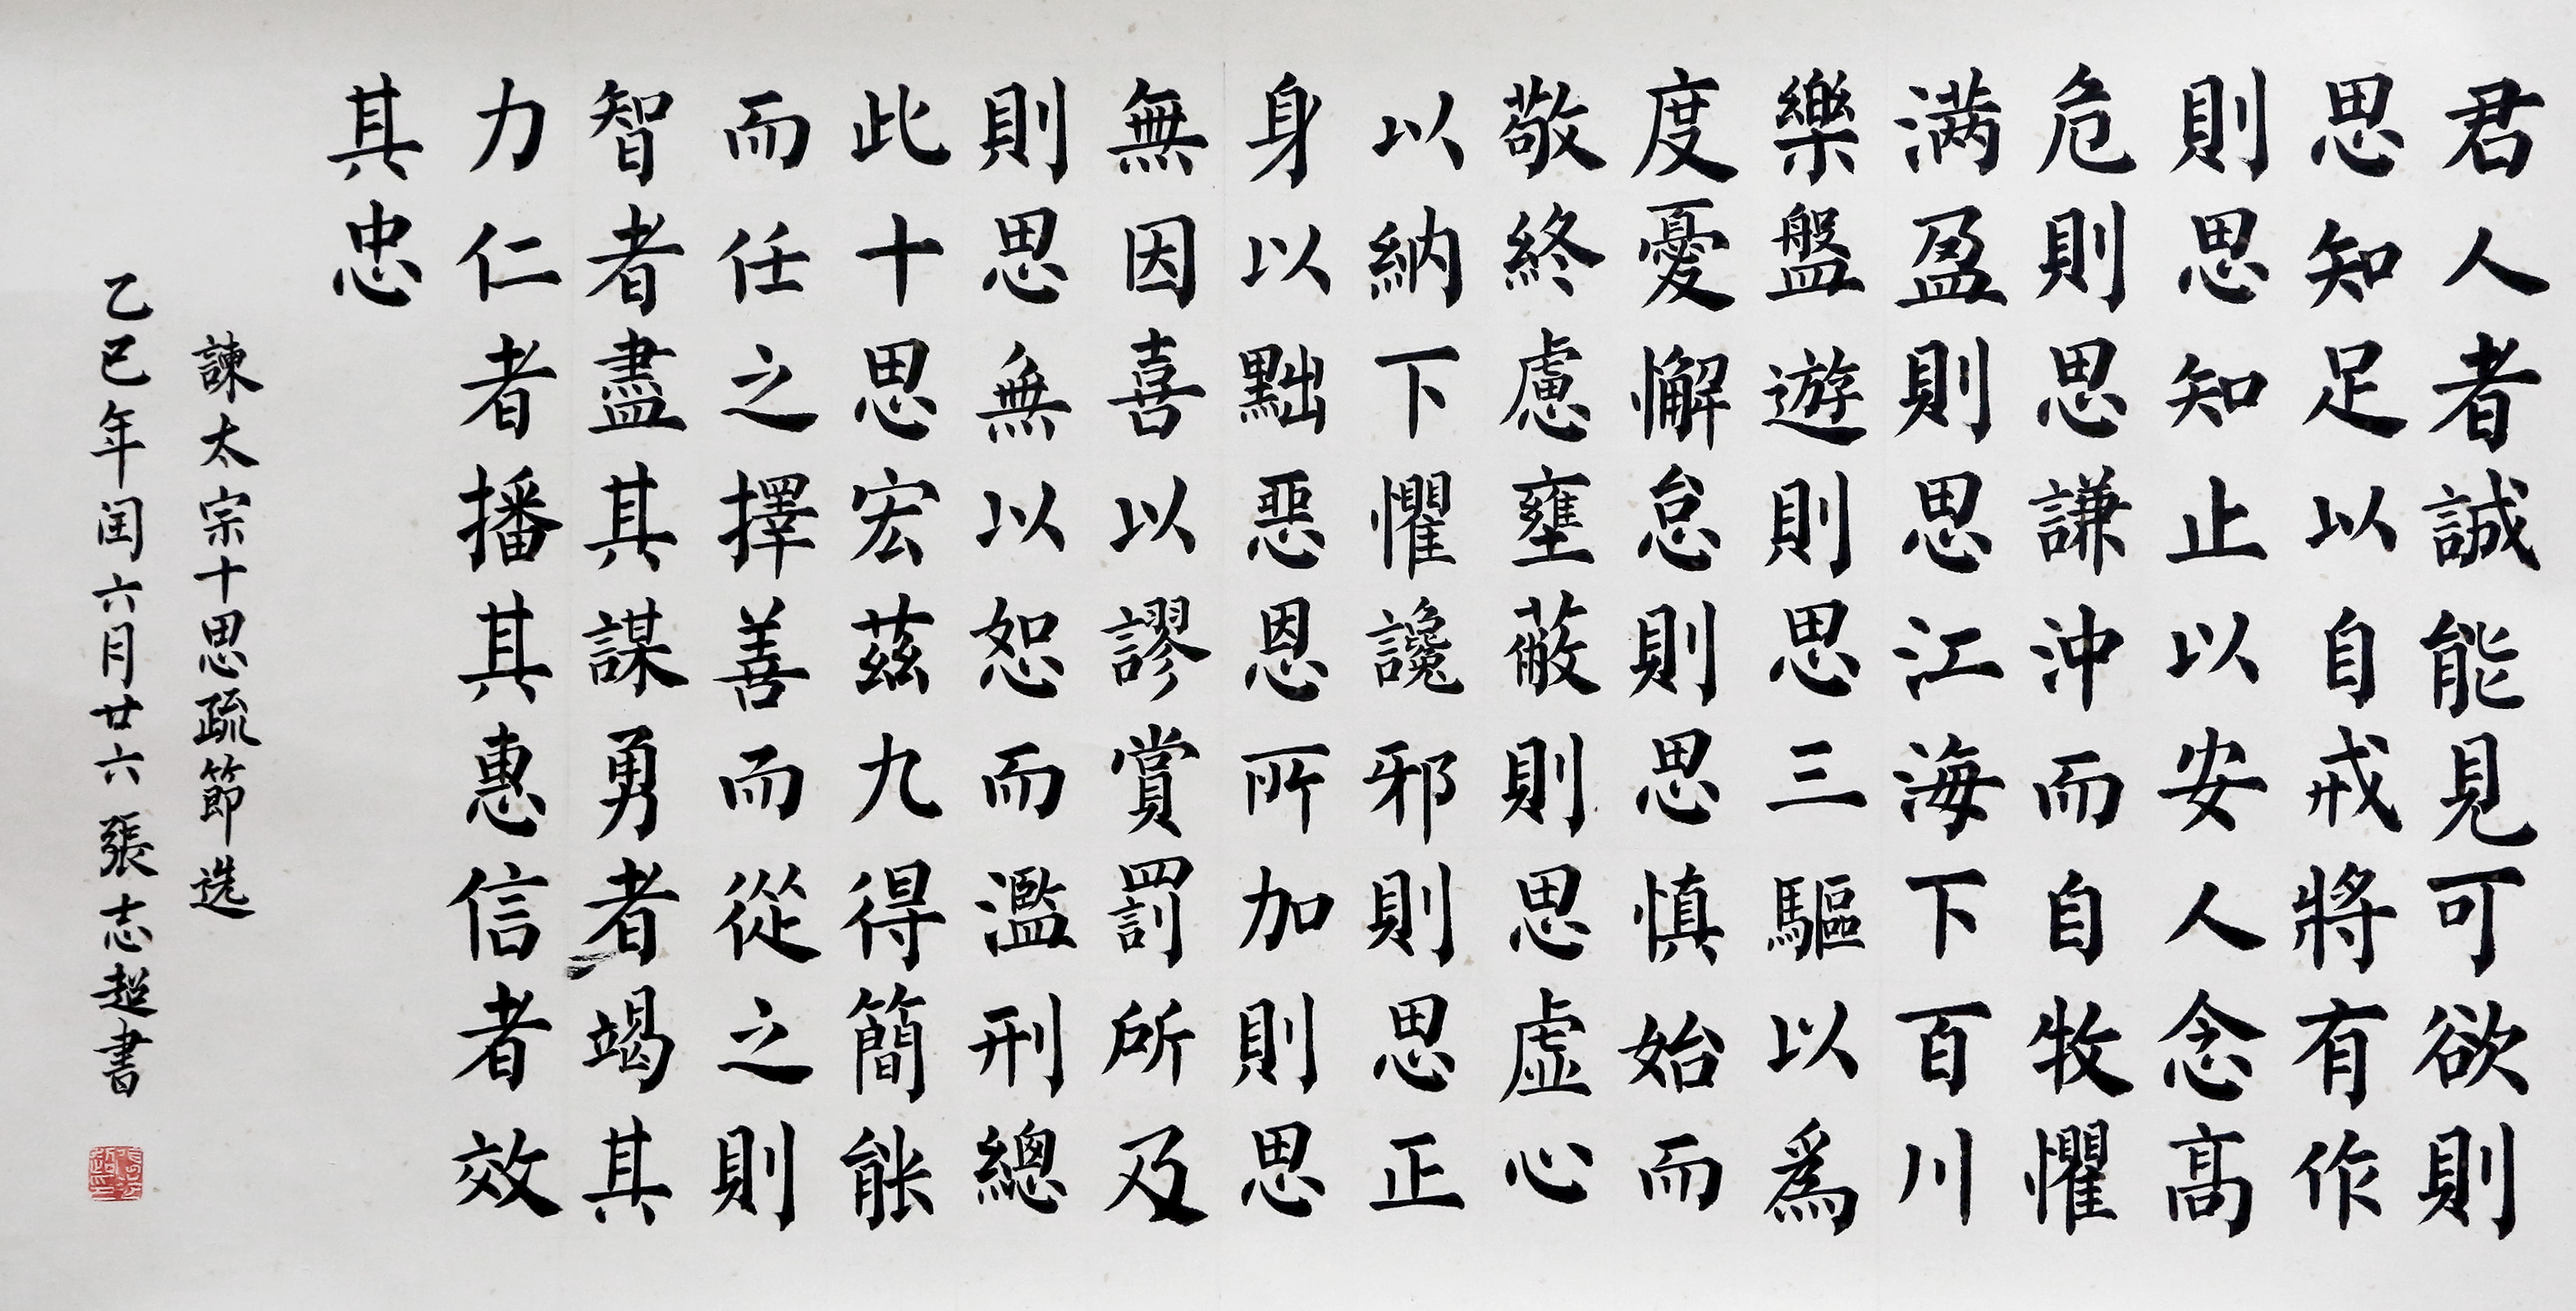 君人者誠能見可欲則
思知足以自戒將有作
則思知止以安人念高
危則思謙沖而自牧懼
满盈則思江海下百川
樂盤遊則思三驅以爲
度憂懈怠則思慎始而
敬終慮壅蔽則思虚心
以納下懼讒邪則思正
身以黜惡恩所加則思
無因喜以謬賞罰所及
則思無以怒而濫刑總
此十思宏茲九得簡能
而任之擇善而從之則
智者盡其謀勇者竭其
力仁者播其惠信者效
其忠
諫太宗十思疏節选
乙巳年闰六月廿六張志超書